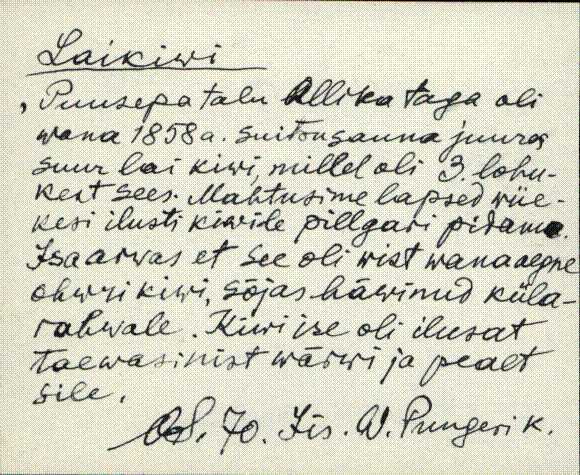 Laikiwi
, Puusepa talu Allika taga oli
wana 1858 a. suitsusauna juures
suur lai kiwi, millel oli 3. lohu-
kest sees. Mahtusime lapsed wäe-
kesi ilusti kiwile pillgari pidama.
Isa arwas et see oli wist wanaaegne
ohwri kiwi, sõjas häwinud küla-
rahwale. Kiwi ise oli ilusat
taewasinist wärwi ja pealt
sile.
70. Jis. W. Pungerik.